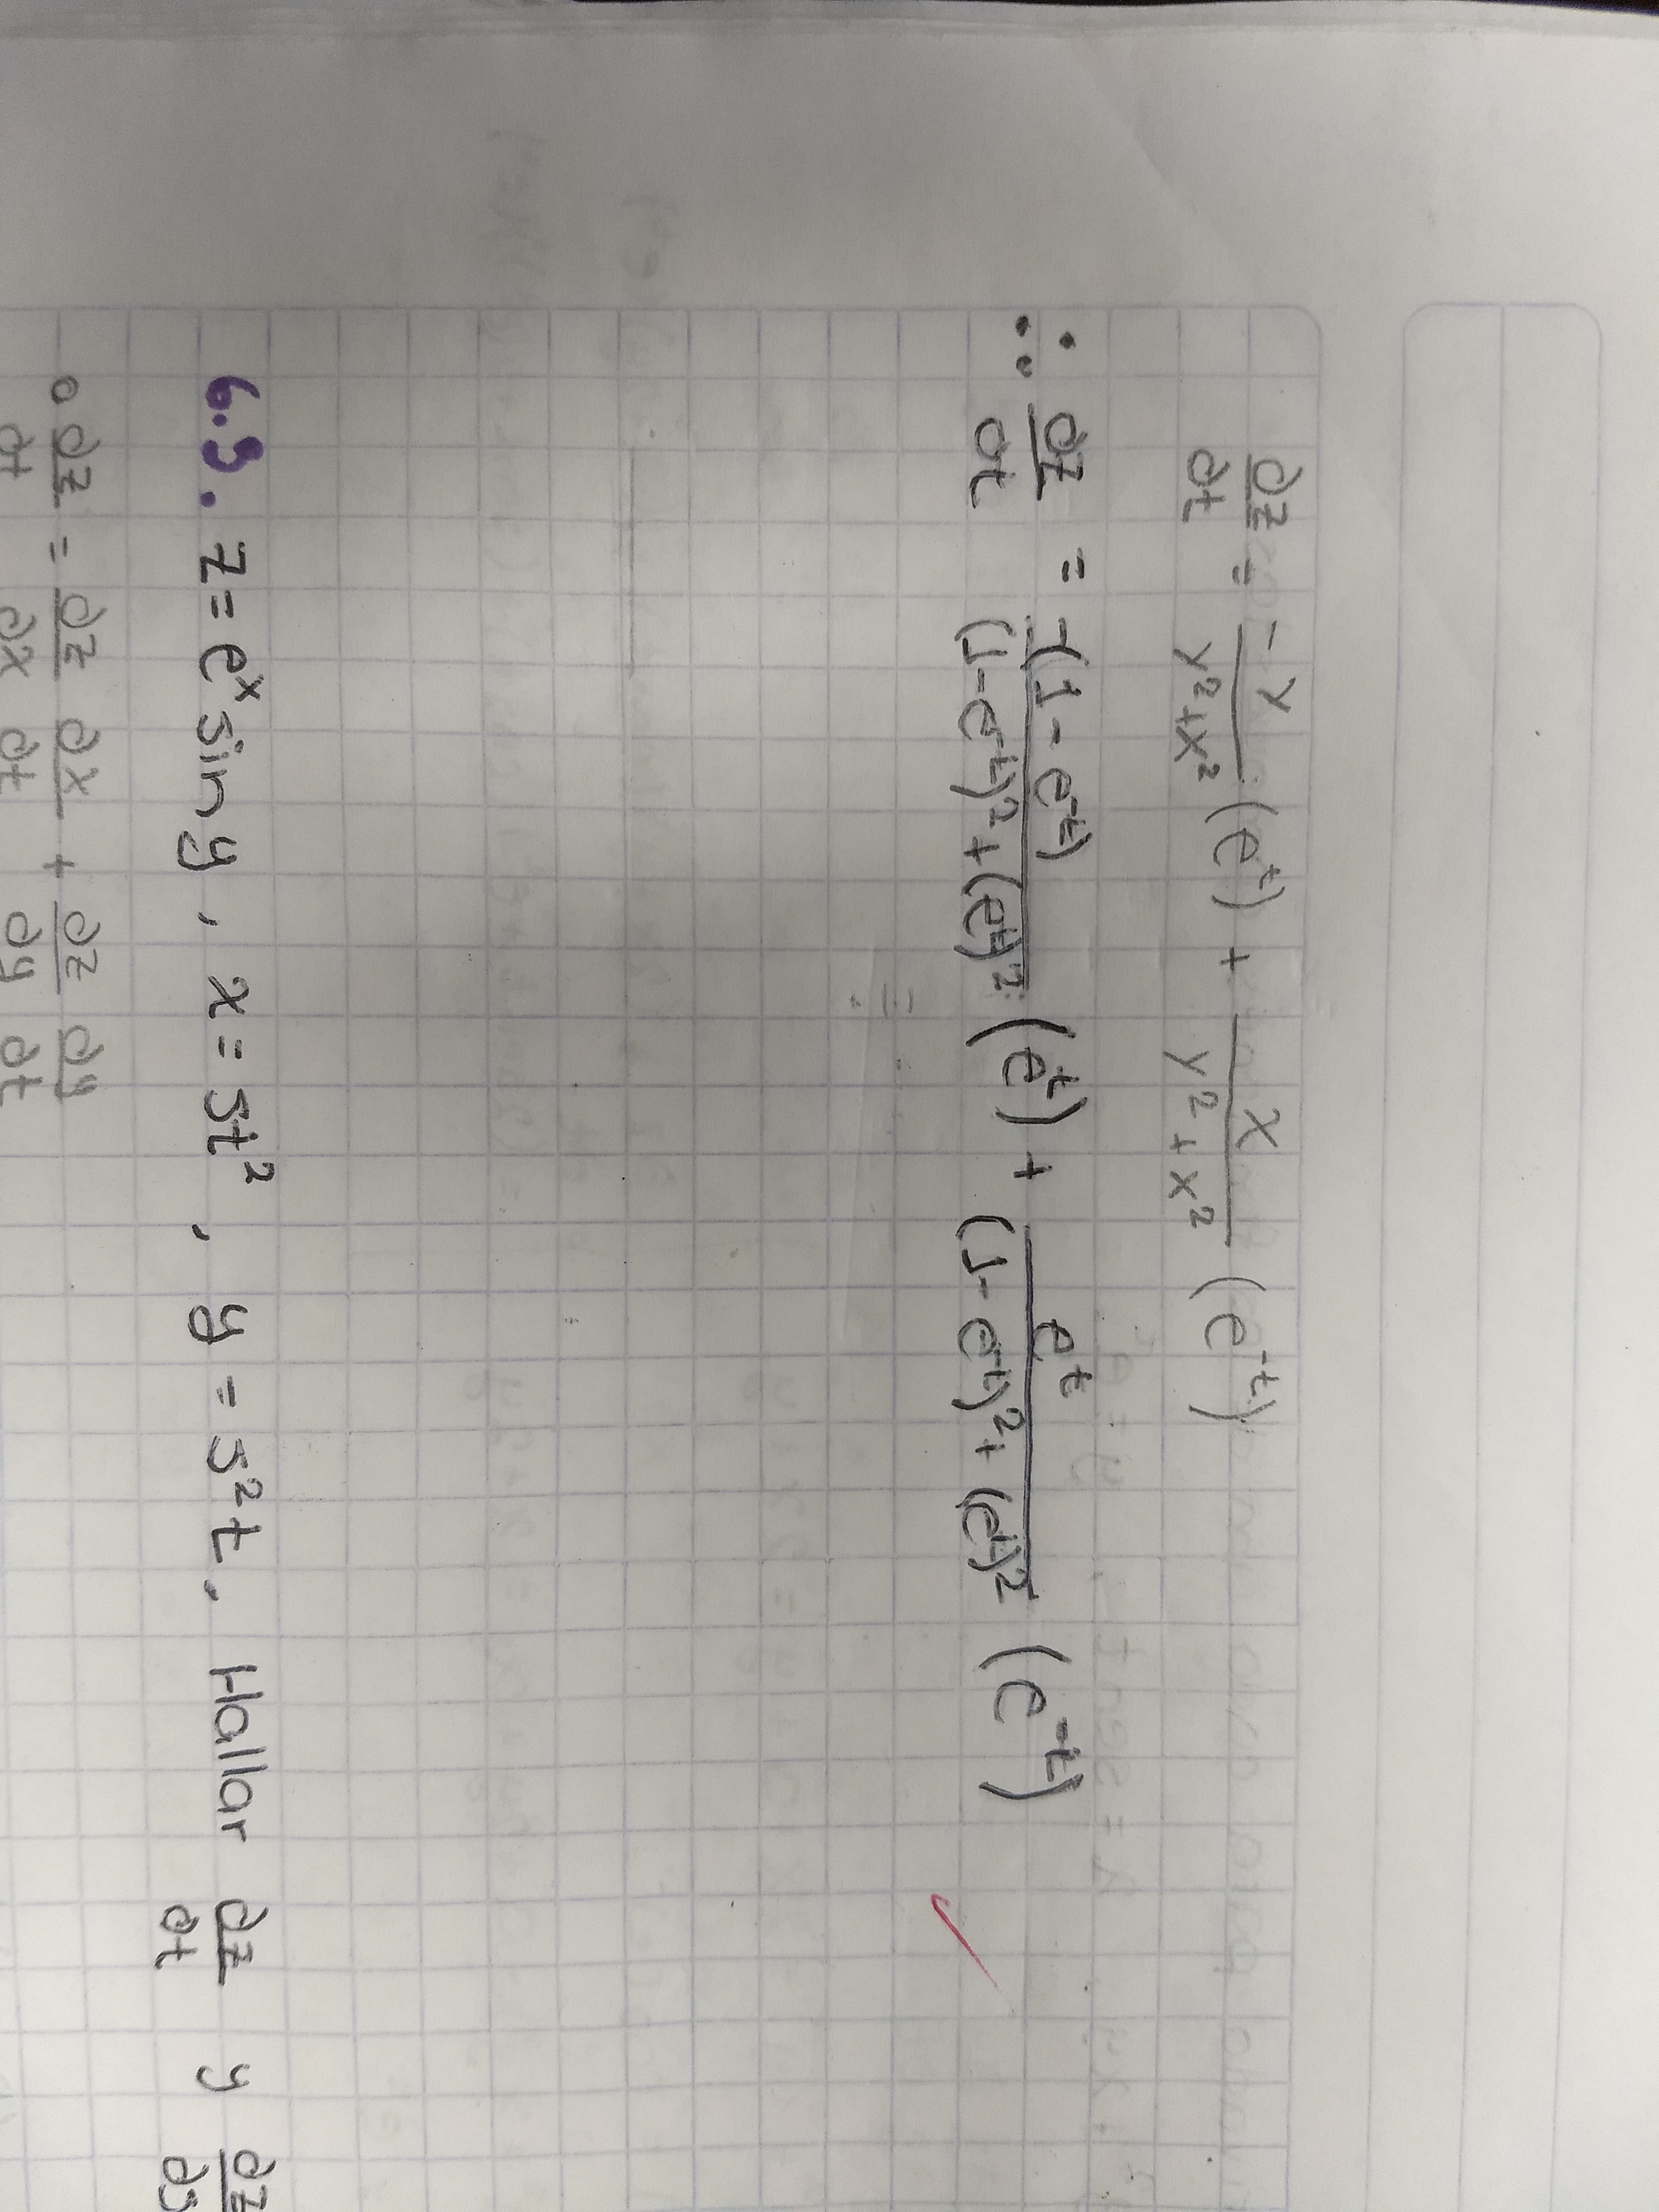 ∂z/∂t = -y/(y²+x²) (e^t) + x/(y²+x²) (e^-t)
∴ ∂z/∂t = -(1-e^-t)/((1-e^-t)²+(e^t)²) (e^t) + e^t/((1-e^-t)²+(e^t)²) (e^-t)
6.9. z=e^x sin y, x=st², y=s²t. Hallar ∂z/∂t y ∂z/∂s
∂z/∂t = ∂z/∂x ∂x/∂t + ∂z/∂y ∂y/∂t